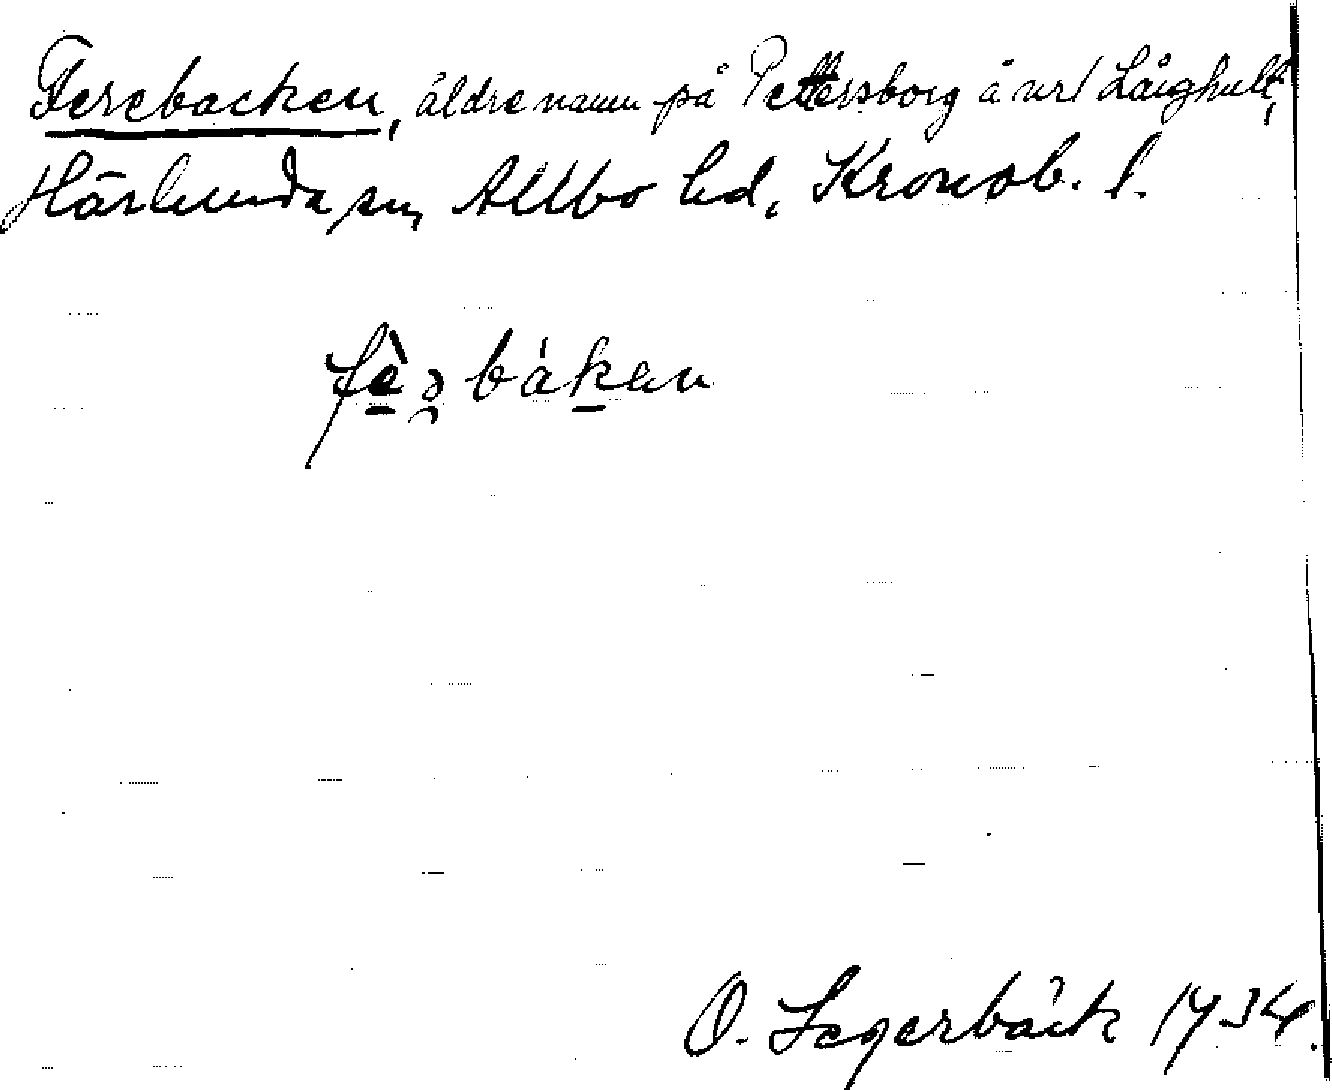 Ferebacken, äldre namn på Pettersborg å nr 1 Långhult,
Härlunda sn, Allbo hd, Kronob. l.
fèə bákən
O. Segerbäck 1934.